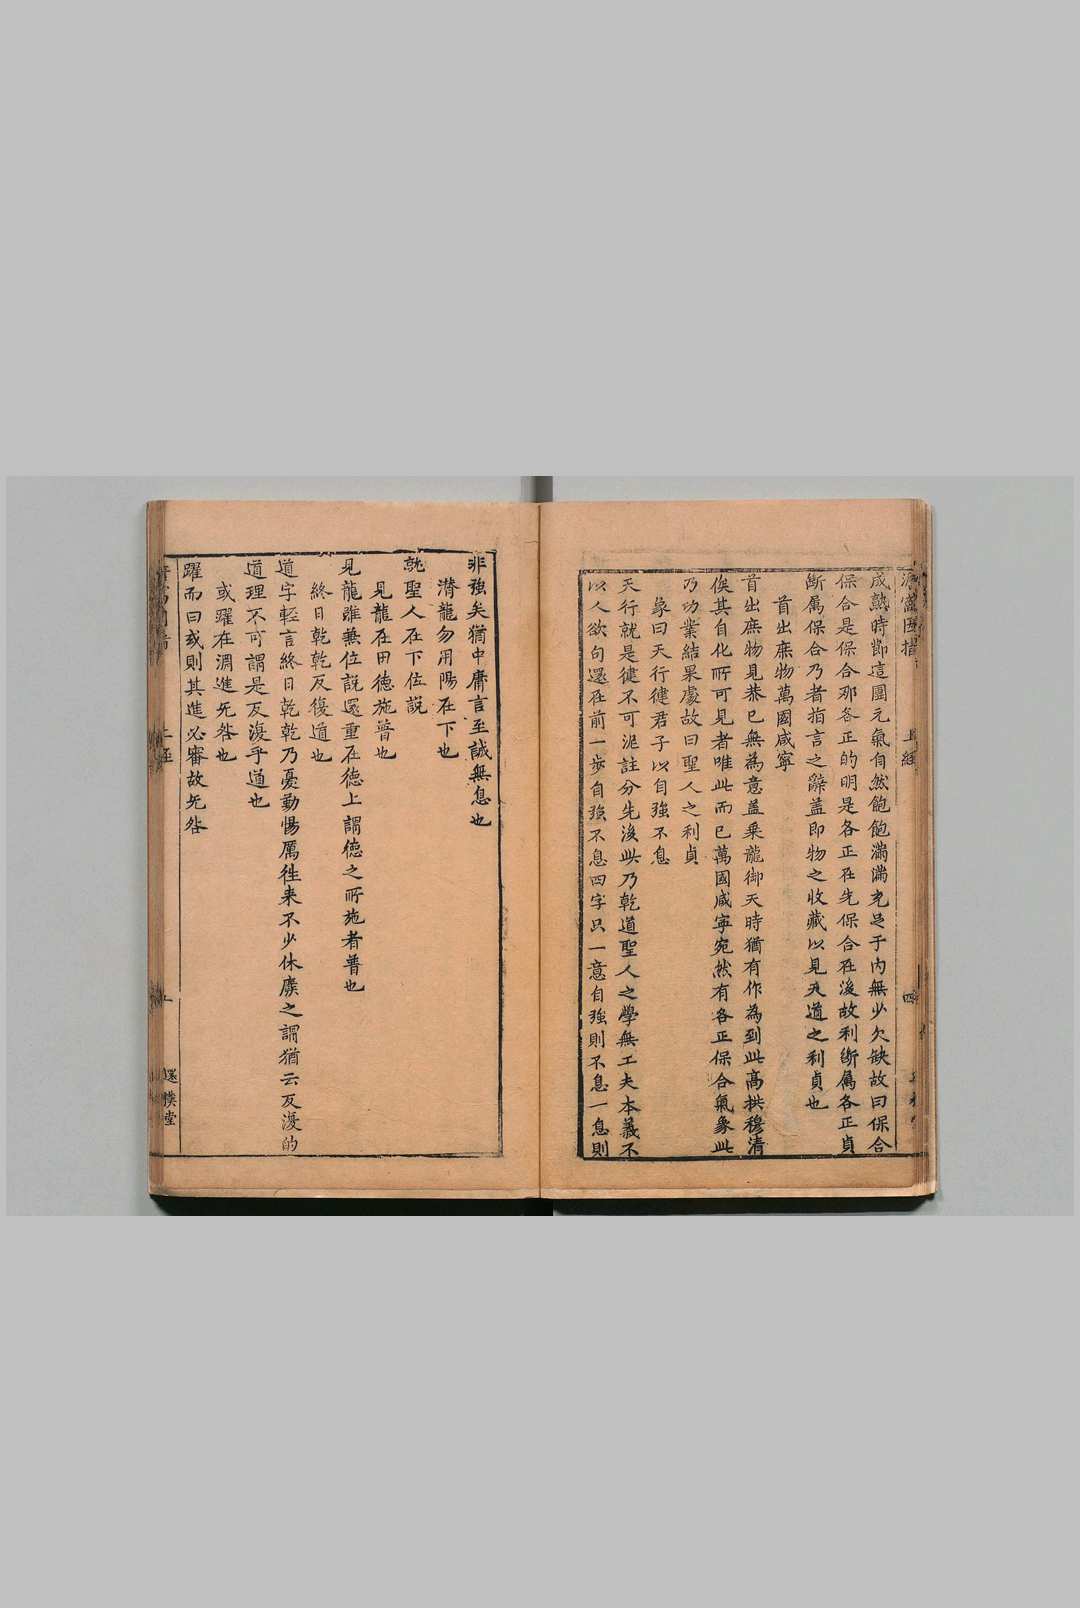 上經
成熟時節這團元氣自然飽飽滿滿充足于內無少欠缺故曰保合
保合是保合那各正的明是各正在先保合在後故利斷屬各正貞
斷属保合乃者指言之辭蓋即物之收藏以見天道之利貞也
首出庶物萬國咸寧
首出庶物見恭已無為意蓋乗龍御天時猶有作為到此髙拱穆清
俟其自化所可見者唯此而已萬國咸寧宛然有各正保合氣象此
乃功業結果處故曰聖人之利貞
象曰天行健君子以自強不息
天行就是健不可泥註分先後此乃乾道聖人之學無工夫本義不
以人欲句還在前一步自強不息四字只一意自強則不息一息則
非強矣猶中庸言至誠無息也
濳龍勿用陽在下也
就聖人在下位説
見龍在田徳施普也
見龍雖兼位説還重在徳上謂徳之所施者普也
終日乾乾反復道也
道字輕言終日乾乾乃憂勤惕厲徃来不少休廢之謂猶云反復的
道理不可謂是反復乎道也
或躍在淵進无咎也
躍而曰或則其進必審故无咎
上經
還樸堂